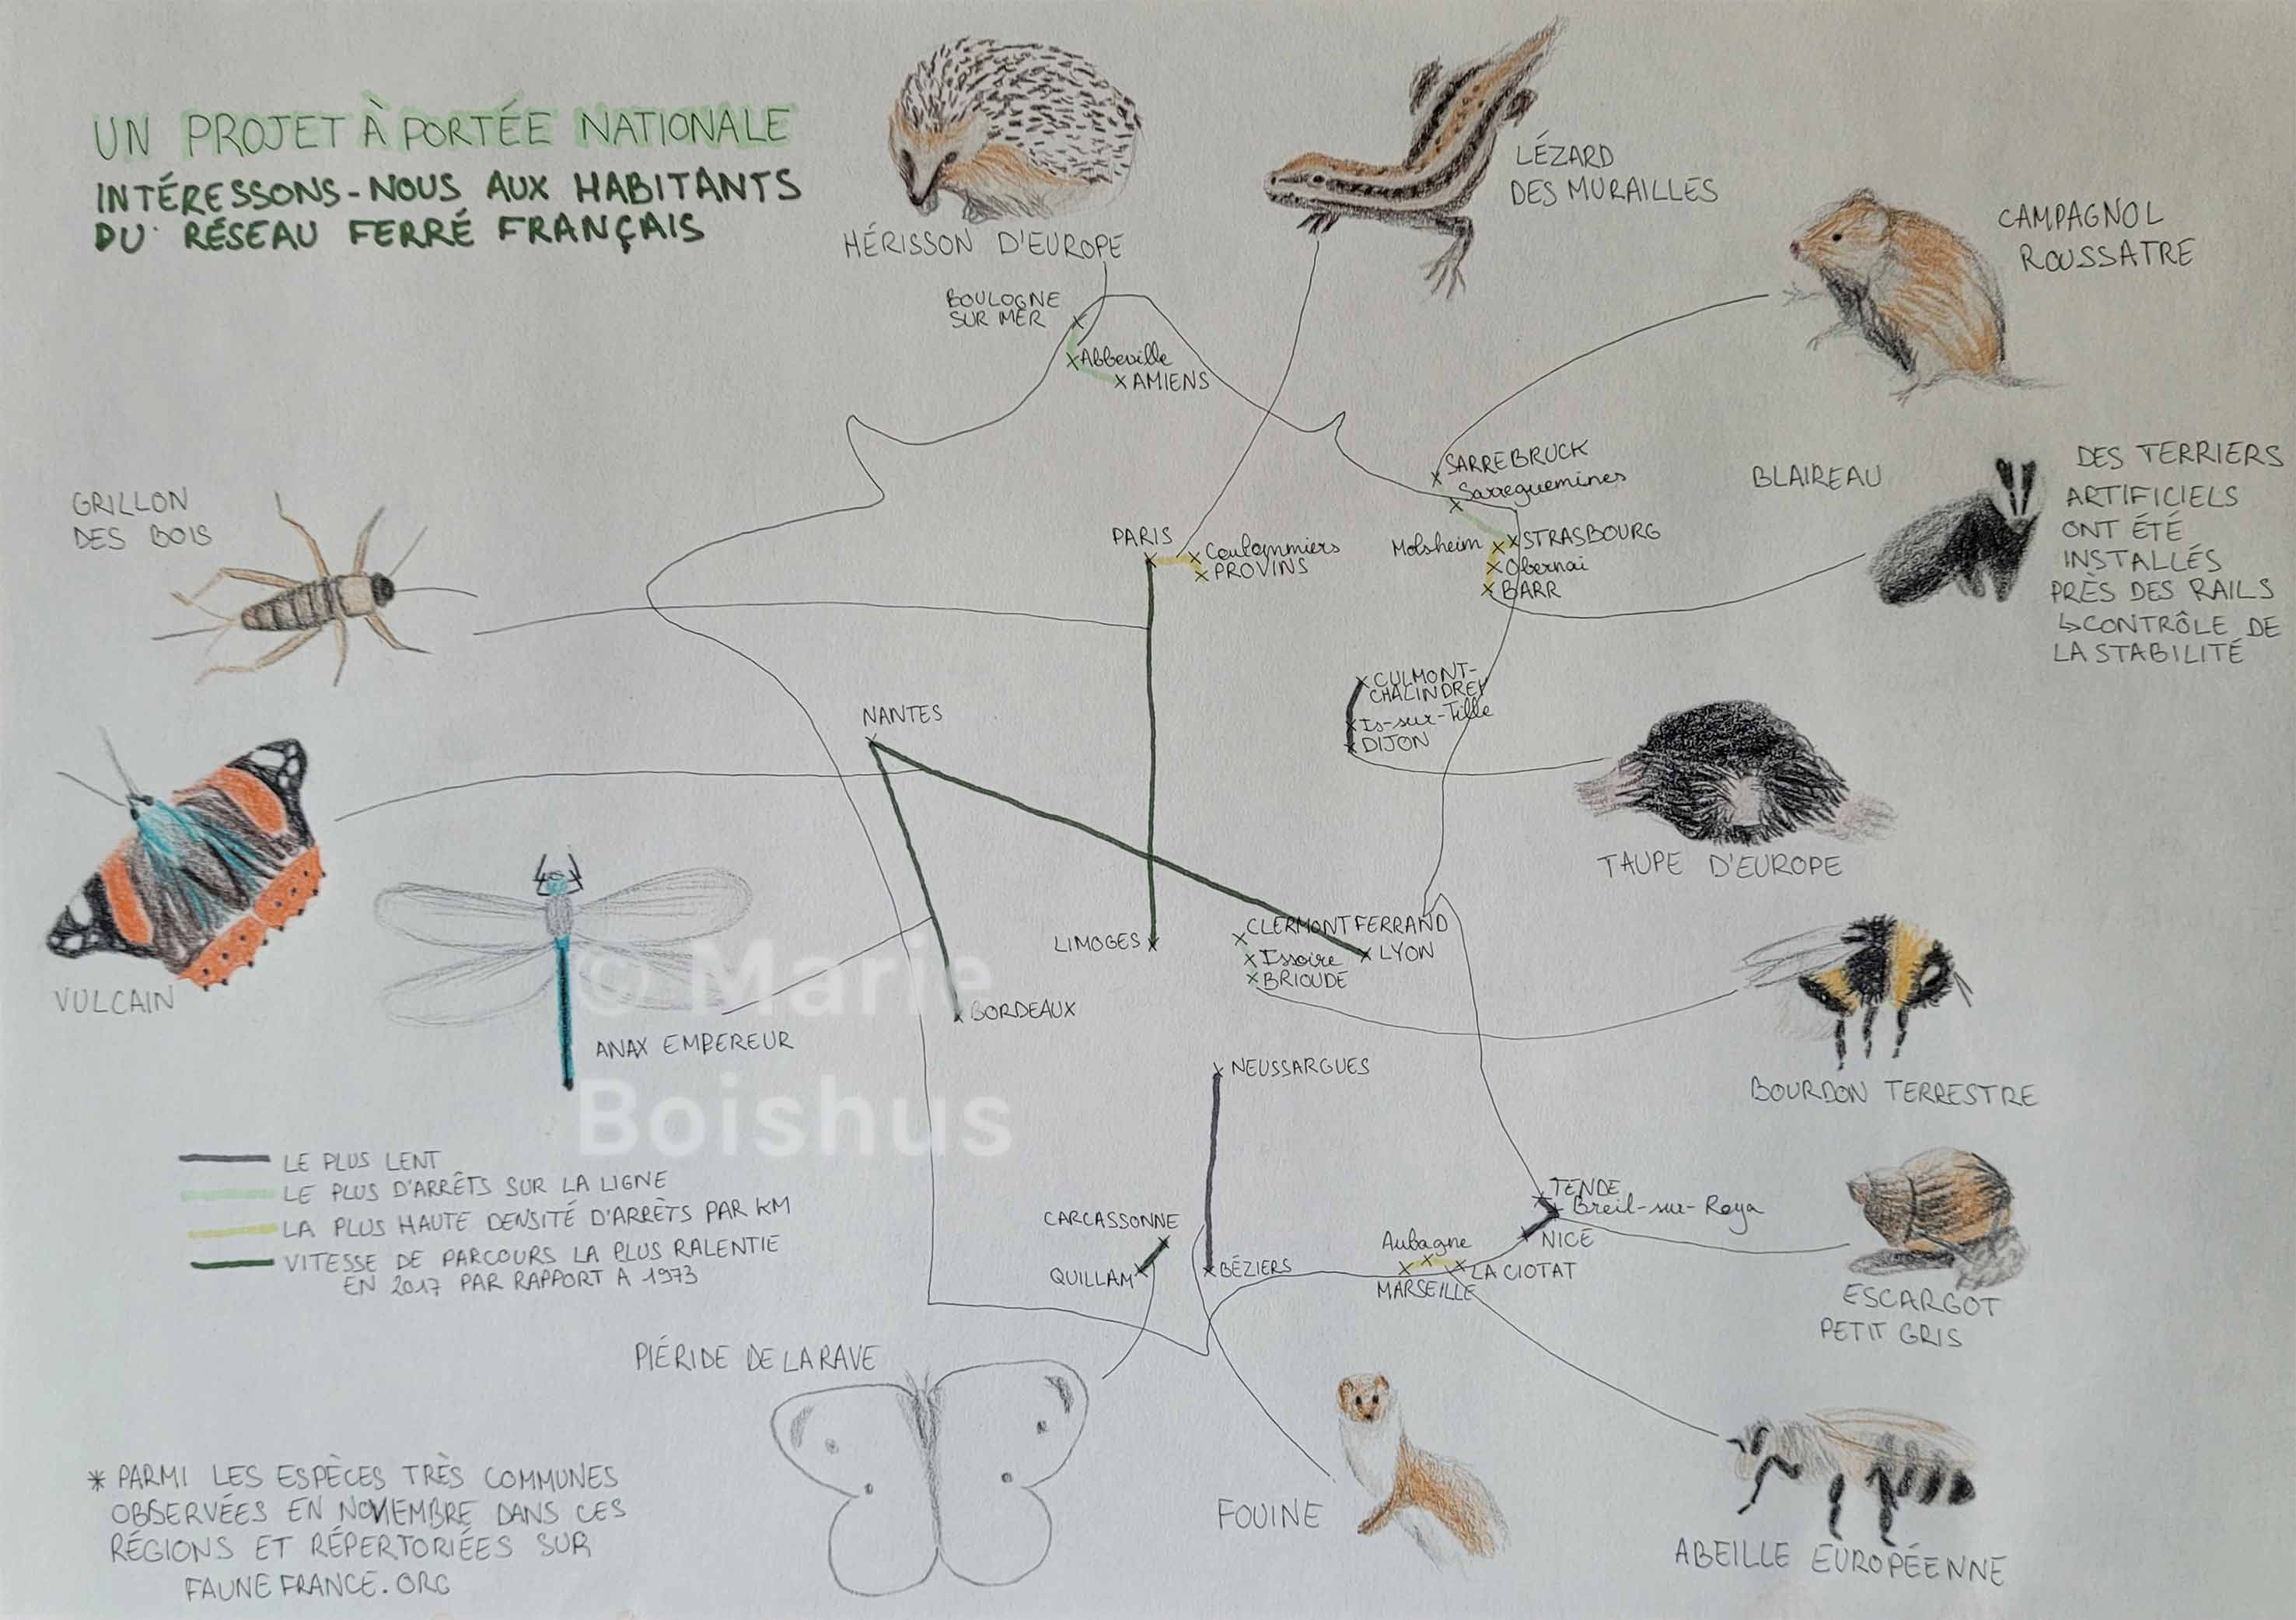 UN PROJET À PORTÉE NATIONALE
INTÉRESSONS-NOUS AUX HABITANTS
DU RÉSEAU FERRÉ FRANÇAIS
HÉRISSON D'EUROPE
LÉZARD
DES MURAILLES
CAMPAGNOL
ROUSSATRE
BOULOGNE
SUR MER
Abbeville
AMIENS
GRILLON
DES BOIS
SARREBRUCK
Sarreguemines
BLAIREAU
DES TERRIERS
ARTIFICIELS
ONT ÉTÉ
INSTALLÉS
PRÈS DES RAILS
↳CONTRÔLE DE
LA STABILITÉ
PARIS
Coulommiers
PROVINS
Molsheim
STRASBOURG
Obernai
BARR
CULMONT-
CHALINDREY
Is-sur-Tille
DIJON
NANTES
TAUPE D'EUROPE
VULCAIN
ANAX EMPEREUR
LIMOGES
CLERMONT FERRAND
Issoire
BRIOUDE
LYON
BORDEAUX
© Marie
Boishus
NEUSSARGUES
BOURDON TERRESTRE
LE PLUS LENT
LE PLUS D'ARRÊTS SUR LA LIGNE
LA PLUS HAUTE DENSITÉ D'ARRÊTS PAR KM
VITESSE DE PARCOURS LA PLUS RALENTIE
EN 2017 PAR RAPPORT A 1973
CARCASSONNE
QUILLAM
BÉZIERS
Aubagne
MARSEILLE
LA CIOTAT
TENDE
Breil-sur-Roya
NICE
ESCARGOT
PETIT GRIS
PIÉRIDE DE LA RAVE
FOUINE
ABEILLE EUROPÉENNE
* PARMI LES ESPÈCES TRÈS COMMUNES
OBSERVÉES EN NOVEMBRE DANS CES
RÉGIONS ET RÉPERTORIÉES SUR
FAUNEFRANCE.ORG